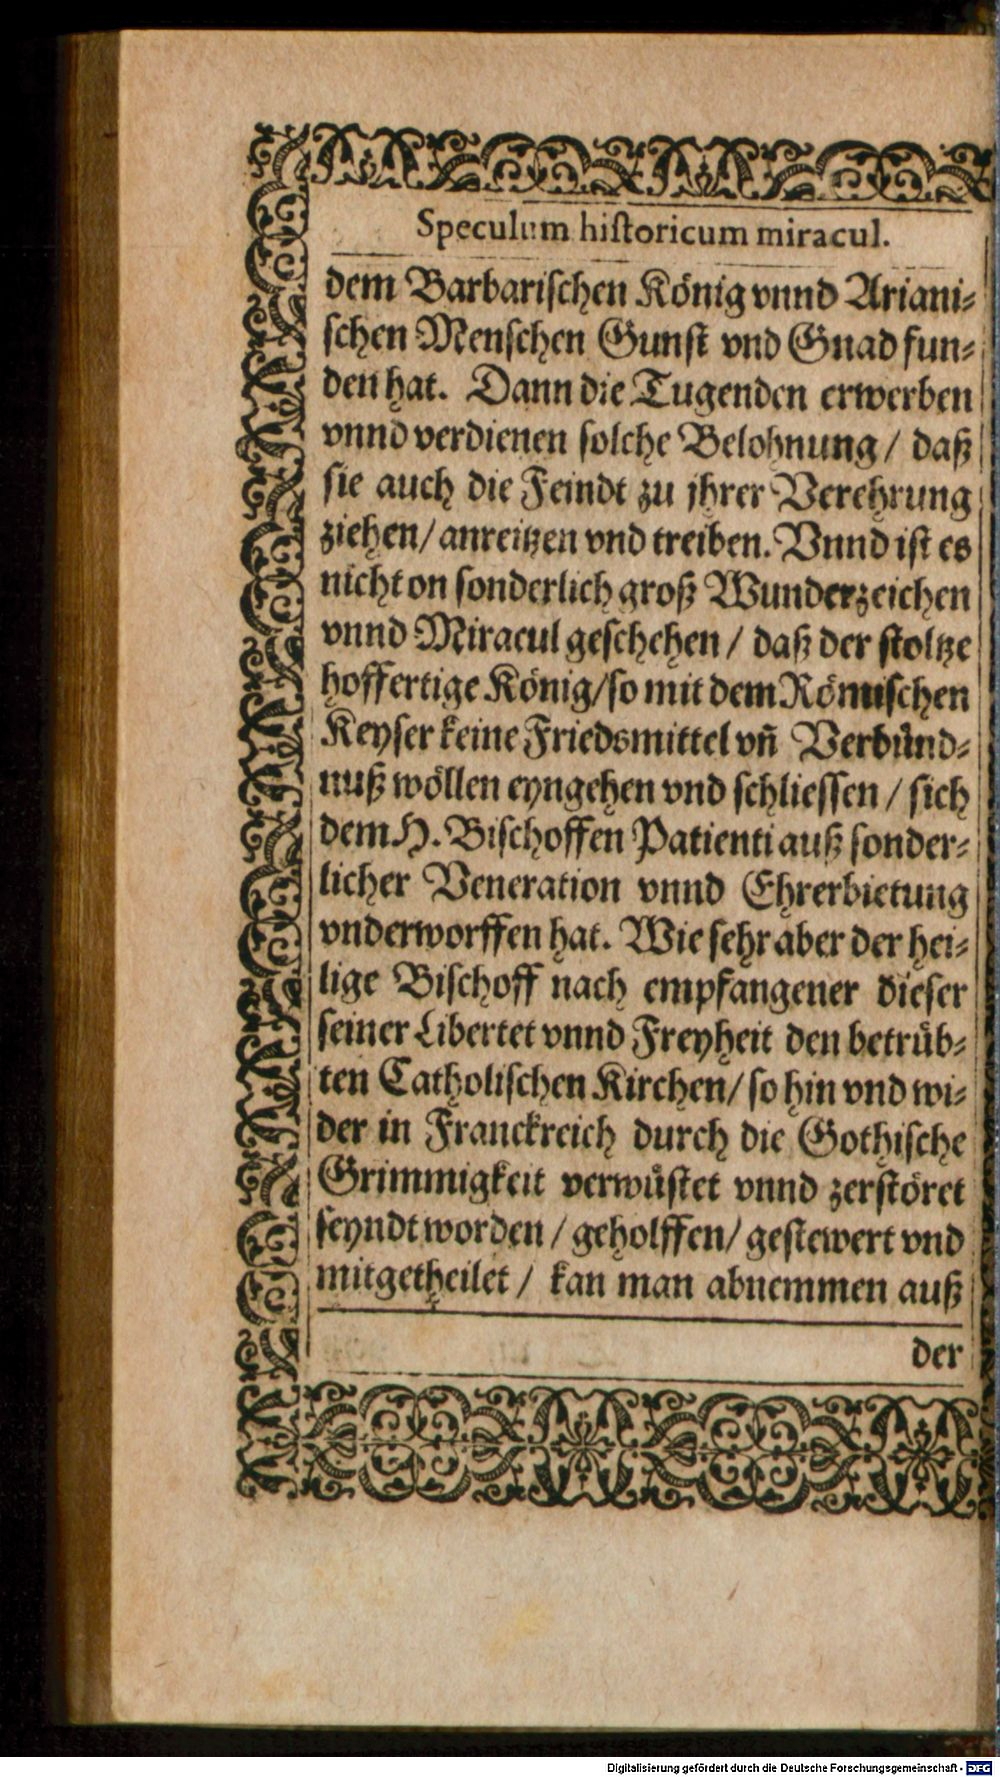 Speculum historicum miracul.
dem Barbarischen König vnnd Ariani-
schen Menschen Gunst vnd Gnad fun-
den hat. Dann die Tugenden erwerben
vnnd verdienen solche Belohnung / daß
sie auch die Feindt zu jhrer Verehrung
ziehen/ anreitzen vnd treiben. Vnnd ist es
nicht on sonderlich groß Wunderzeichen
vnnd Miracul geschehen / daß der stoltze
hoffertige König/so mit dem Römischen
Keyser keine Friedsmittel vñ Verbünd-
nuß wöllen eyngehen vnd schliessen / sich
dem H. Bischoffen Patienti auß sonder-
licher Veneration vnnd Ehrerbietung
vnderworffen hat. Wie sehr aber der hei-
lige Bischoff nach empfangener dieser
seiner Libertet vnnd Freyheit den betrüb-
ten Catholischen Kirchen/ so hin vnd wi-
der in Franckreich durch die Gothische
Grimmigkeit verwüstet vnnd zerstöret
seyndt worden / geholffen/ gestewert vnd
mitgetheilet / kan man abnemmen auß
der
Digitalisierung gefördert durch die Deutsche Forschungsgemeinschaft - DFG